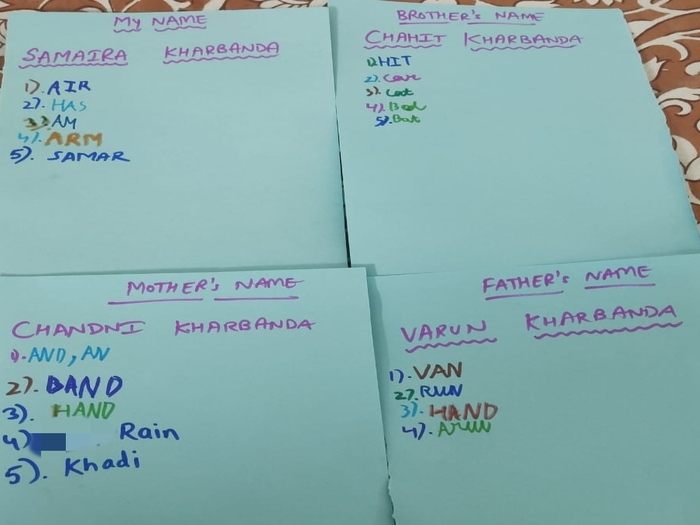 My NAME
SAMAIRA KHARBANDA
1). AIR
2). HAS
3). AM
4). ARM
5). SAMAR
BROTHER'S NAME
CHAHIT KHARBANDA
1). HIT
2). Car
3). Cat
4). Bad
5). But
MOTHER'S NAME
CHANDNI KHARBANDA
1). AND, AN
2). BAND
3). HAND
4) Rain
5). Khadi
FATHER'S NAME
VARUN KHARBANDA
1). VAN
2). RUN
3). HAND
4). Arun